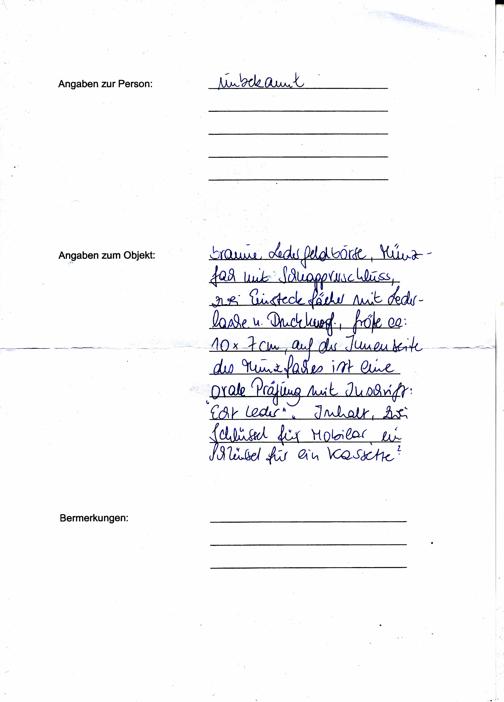 Angaben zur Person:
unbekannt
Angaben zum Objekt:
braune Ledergeldbörse, Münz-
fach mit Schnappverschluss,
zwei Einsteckfächer mit Leder-
lasche u. Druckknopf, Größe ca:
10 x 7 cm, auf der Innenseite
des Münzfaches ist eine
ovale Prägung mit Inschrift:
"Echt Leder". Inhalt, zwei
Schlüssel für Mobilar, ein
Schlüssel für ein Kassette?
Bermerkungen: